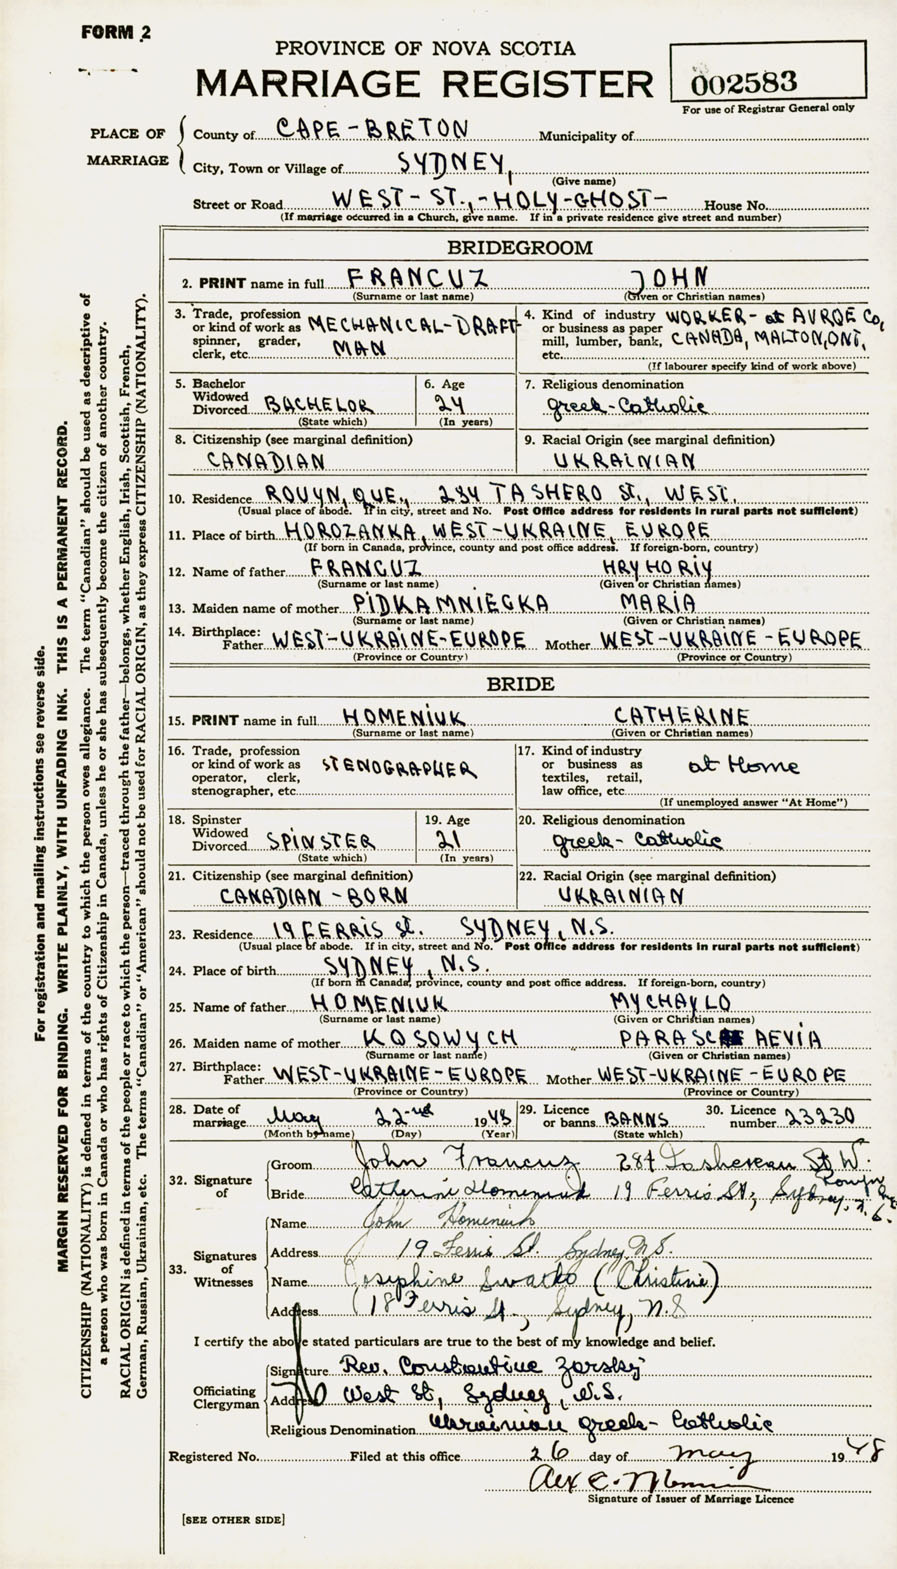 FORM 2
PROVINCE OF NOVA SCOTIA
MARRIAGE REGISTER
002583
For use of Registrar General only
PLACE OF MARRIAGE
County of CAPE-BRETON Municipality of
City, Town or Village of SYDNEY,
(Give name)
Street or Road WEST-ST.,-HOLY-GHOST- House No.
(If marriage occurred in a Church, give name. If in a private residence give street and number)
BRIDEGROOM
2. PRINT name in full FRANCUZ JOHN
(Surname or last name) (Given or Christian names)
3. Trade, profession or kind of work as spinner, grader, clerk, etc. MECHANICAL-DRAFT-MAN
4. Kind of industry or business as paper mill, lumber, bank, etc. WORKER- at AVROE Co, CANADA, MALTON, ONT,
(If labourer specify kind of work above)
5. Bachelor Widowed Divorced BACHELOR
(State which)
6. Age 24
(In years)
7. Religious denomination
greek-Catholic
8. Citizenship (see marginal definition)
CANADIAN
9. Racial Origin (see marginal definition)
UKRAINIAN
10. Residence ROUYN, QUE., 284 TASHERO St., WEST.
(Usual place of abode. If in city, street and No. Post Office address for residents in rural parts not sufficient)
11. Place of birth HOROZANKA, WEST-UKRAINE, EUROPE
(If born in Canada, province, county and post office address. If foreign-born, country)
12. Name of father FRANCUZ HRYHORIY
(Surname or last name) (Given or Christian names)
13. Maiden name of mother PIDKAMNIECKA MARIA
(Surname or last name) (Given or Christian names)
14. Birthplace: Father WEST-UKRAINE-EUROPE Mother WEST-UKRAINE-EUROPE
(Province or Country) (Province or Country)
BRIDE
15. PRINT name in full HOMENIUK CATHERINE
(Surname or last name) (Given or Christian names)
16. Trade, profession or kind of work as operator, clerk, stenographer, etc. STENOGRAPHER
17. Kind of industry or business as textiles, retail, law office, etc. at Home
(If unemployed answer "At Home")
18. Spinster Widowed Divorced SPINSTER
(State which)
19. Age 21
(In years)
20. Religious denomination
greek-Catholic
21. Citizenship (see marginal definition)
CANADIAN-BORN
22. Racial Origin (see marginal definition)
UKRAINIAN
23. Residence 19 FERRIS St. SYDNEY, N.S.
(Usual place of abode. If in city, street and No. Post Office address for residents in rural parts not sufficient)
24. Place of birth SYDNEY, N.S.
(If born in Canada, province, county and post office address. If foreign-born, country)
25. Name of father HOMENIUK MYCHAYLO
(Surname or last name) (Given or Christian names)
26. Maiden name of mother KOSOWYCH PARASC AEVIA
(Surname or last name) (Given or Christian names)
27. Birthplace: Father WEST-UKRAINE-EUROPE Mother WEST-UKRAINE-EUROPE
(Province or Country) (Province or Country)
28. Date of marriage May 22-nd 1948
(Month by name) (Day) (Year)
29. Licence or banns BANNS
(State which)
30. Licence number 23230
32. Signature of
Groom John Francuz 284 Tashereau St W. Rouyn Que
Bride Catherine Homeniuk 19 Ferris St, Sydney, N.S.
33. Signatures of Witnesses
Name John Homeniuk
Address 19 Ferris St. Sydney N.S.
Name Josephine Swatko (Christine)
Address 18 Ferris St, Sydney, N.S
I certify the above stated particulars are true to the best of my knowledge and belief.
Officiating Clergyman
Signature Rev. Constantine Zarsky
Address West St, Sydney, N.S.
Religious Denomination Ukrainian greek-Catholic
Registered No. Filed at this office 26 day of may 1948
Alex C.
Signature of Issuer of Marriage Licence
[SEE OTHER SIDE]
For registration and mailing instructions see reverse side.
MARGIN RESERVED FOR BINDING. WRITE PLAINLY, WITH UNFADING INK. THIS IS A PERMANENT RECORD.
CITIZENSHIP (NATIONALITY) is defined in terms of the country to which the person owes allegiance. The term "Canadian" should be used as descriptive of
a person who was born in Canada or who has rights of Citizenship in Canada, unless he or she has subsequently become the citizen of another country.
RACIAL ORIGIN is defined in terms of the people or race to which the person—traced through the father—belongs, whether English, Irish, Scottish, French,
German, Russian, Ukrainian, etc. The terms "Canadian" or "American" should not be used for RACIAL ORIGIN, as they express CITIZENSHIP (NATIONALITY).